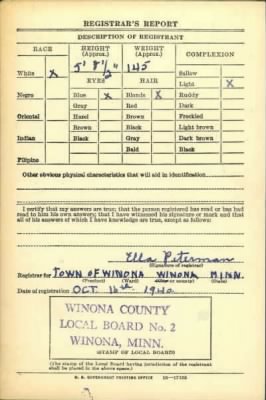 REGISTRAR'S REPORT
DESCRIPTION OF REGISTRANT
RACE HEIGHT (Approx.) WEIGHT (Approx.) COMPLEXION
5' 8 1/2" 145 Sallow
White X EYES HAIR Light X
Negro Blue X Blonde X Ruddy
Gray Red Dark
Oriental Hazel Brown Freckled
Brown Black Light brown
Indian Black Gray Dark brown
Bald Black
Filipino
Other obvious physical characteristics that will aid in identification
I certify that my answers are true; that the person registered has read or has had
read to him his own answers; that I have witnessed his signature or mark and that
all of his answers of which I have knowledge are true, except as follows:
Ella Peterman
(Signature of registrar)
Registrar for TOWN OF WINONA WINONA MINN.
(Precinct) (Ward) (City or county) (State)
Date of registration OCT. 16th 1940
WINONA COUNTY
LOCAL BOARD No. 2
WINONA, MINN.
(STAMP OF LOCAL BOARD)
(The stamp of the Local Board having jurisdiction of the registrant
shall be placed in the above space.)
U. S. GOVERNMENT PRINTING OFFICE 16—17105